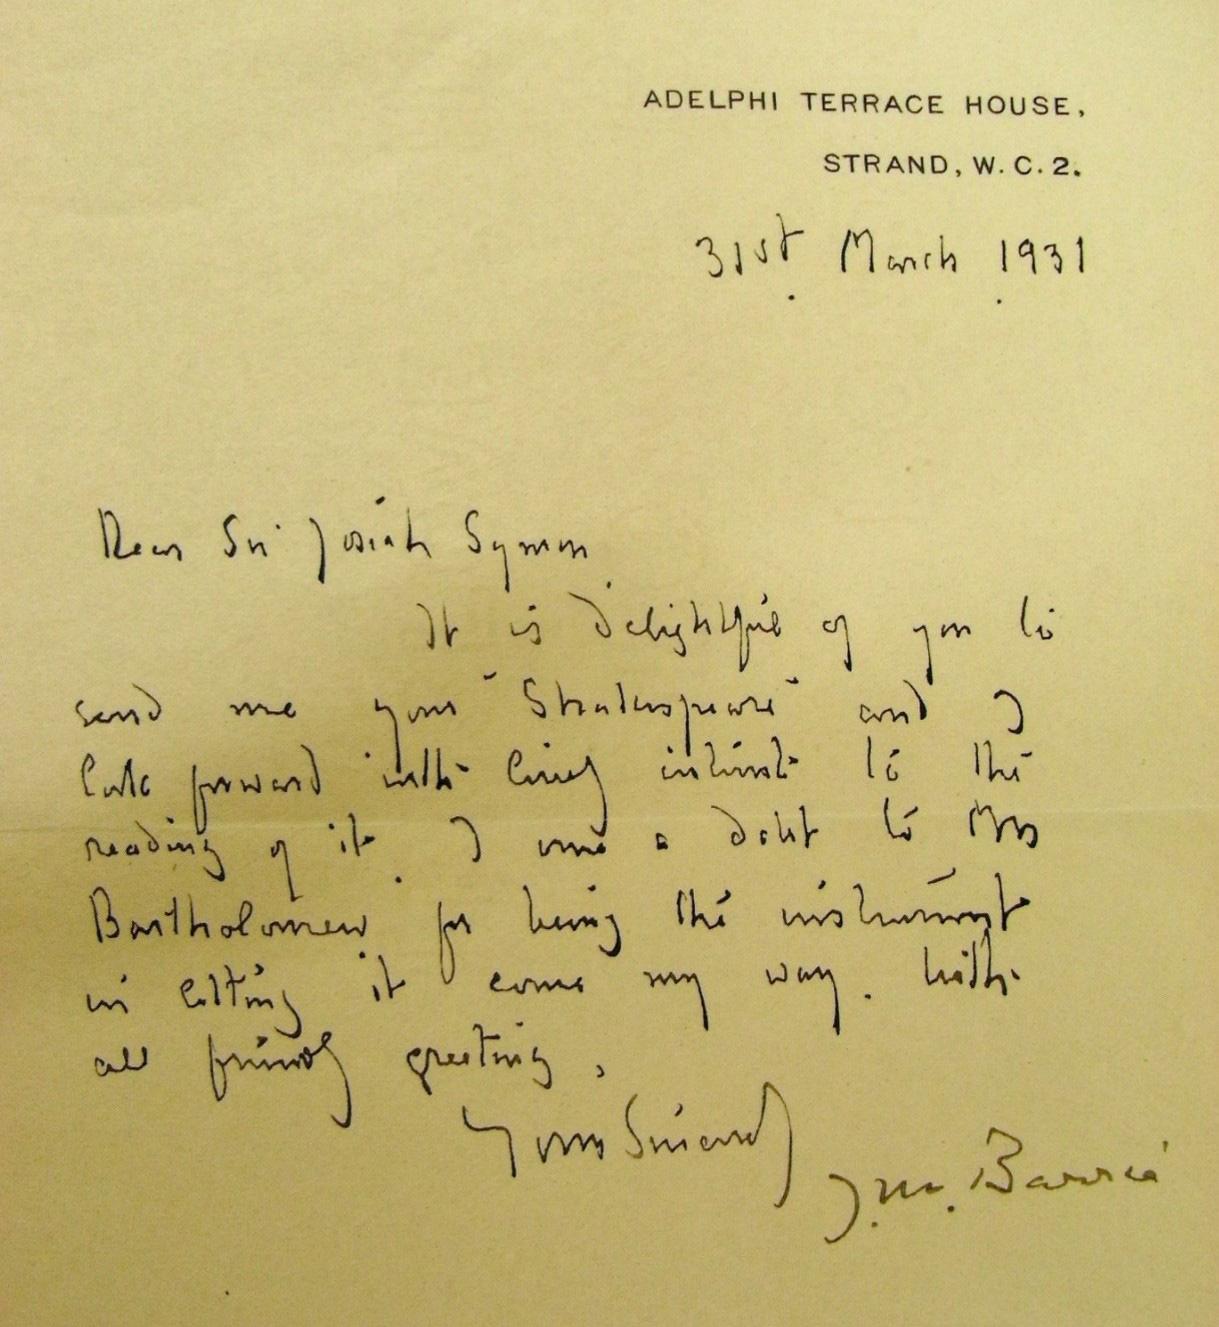 ADELPHI TERRACE HOUSE,
STRAND, W.C.2.
31st March 1931
Dear Sir Josiah Symon
It is delightful of you to
send me your "Shakespeare" and I
look forward with lively interest to the
reading of it. I owe a debt to Mrs
Bartholomew for being the instrument
in letting it come my way. With
all friendly greeting,
Yours Sincerely
J.M. Barrie